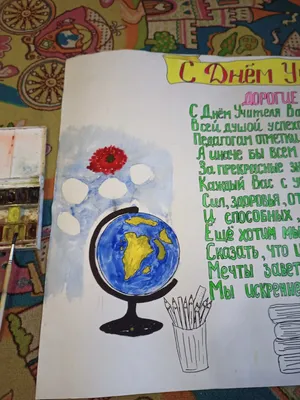 С Днём
ДОРОГИЕ
С Днём Учителя Ва
Всей душой успе
Педагогам отметки
А иначе бы всем
За прекрасные з
Каждый Вас с
Сил, здоровья, от
И способных
Ещё хотим мы
Сказать, что
Мечты завет
Мы искренне